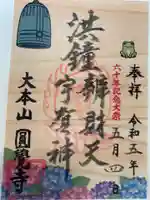 奉拝
令和五年
五月四日
六十年記念大祭
洪鐘辨財天
宇賀神
大本山
圓覺寺